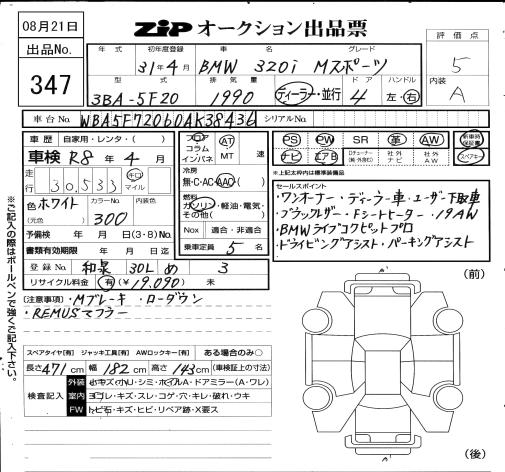 08月21日
ZiP オークション出品票
出品No.
347
評価点
5
内装
A
年式 初年度登録 車名 グレード
31年4月 BMW 320i Mスポーツ
型式 排気量 ドア ハンドル
3BA-5F20 1990 ディーラー・並行 4 左・右
車台No. WBA5F72060AK38436 シリアルNo.
車歴 自家用・レンタ・( )
車検 R8年4月
走行 30,533 キロ マイル
色 ホワイト カラーNo. 300 内装色
(元色)
予備検 年 月 日(3・8)No.
書類有効期限 年 月 日迄
登録No. 和泉 301 め 3
リサイクル料金 有(¥19,090) 未
フロア コラム インパネ AT MT 速
冷房
無・C・AC・AAC・( )
燃料
ガソリン・軽油・電気・その他( )
Nox 適合・非適合
乗車定員 5 名
PS PW SR 革 AW 新車時保証書
ナビ エアB 社外ナビ 社外AW スペアキー
※上記太枠内は標準装備品
セールスポイント
・ワンオーナー・ディーラー車・ユーザー下取車
・ブラックレザー・Fシートヒーター・19AW
・BMWライブコクピットプロ
・ドライビングアシスト・パーキングアシスト
(注意事項)・Mブレーキ ・ローダウン
・REMUSマフラー
スペアタイヤ[有] ジャッキ工具[有] AWロックキー[有] ある場合のみ○
長さ471cm 幅182cm 高さ143cm(車検証上の寸法)
検査記入
外装 キズ・シミ・ホイルA・ドアミラー(A・ワレ)
室内 ヨゴレ・キズ・スレ・コゲ・穴・キレ・破れ・ウキ
FW トビ石・キズ・ヒビ・リペア跡・X要ス
※ご記入の際はボールペンで強くご記入下さい。
(前)
(後)